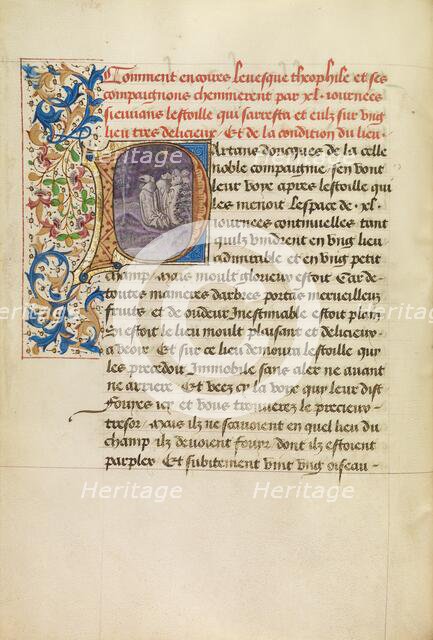 Comment encoures levesque theophile et ses
compaignons cheminerent par xl. iournees
sieuvans lestoille qui sarresta et eulz sur vng
lieu tres delicieux Et de la condition du lieu.
Partans doncques de la celle
noble compaignie sen vont
leur voye apres lestoille qui
les menoit lespace de .xl.
iournees continuelles tant
quilz vindrent en vng lieu
admirable et en vng petit
champ Mais moult glorieux estoit Car de
toutes manieres darbres portās merveilleux
fruits et de oudeur Inestimable estoit plein
Si estoit le lieu moult plaisant et delicieux
a veoir Et sur ce lieu demoura lestoille qui
les precedoit Immobile sans aler ne avant
ne arriere Et veez cy la voix qui leur dist
Fouyes icy et vous trouverez le precieux
tresor Mais ilz ne scavoient en quel lieu du
champ ilz devoient fouyr dont ilz estoient
parplex Et subitement vint vng oiseau
Heritage
Heritage
Heritage
Heritage
Heritage
Heritage